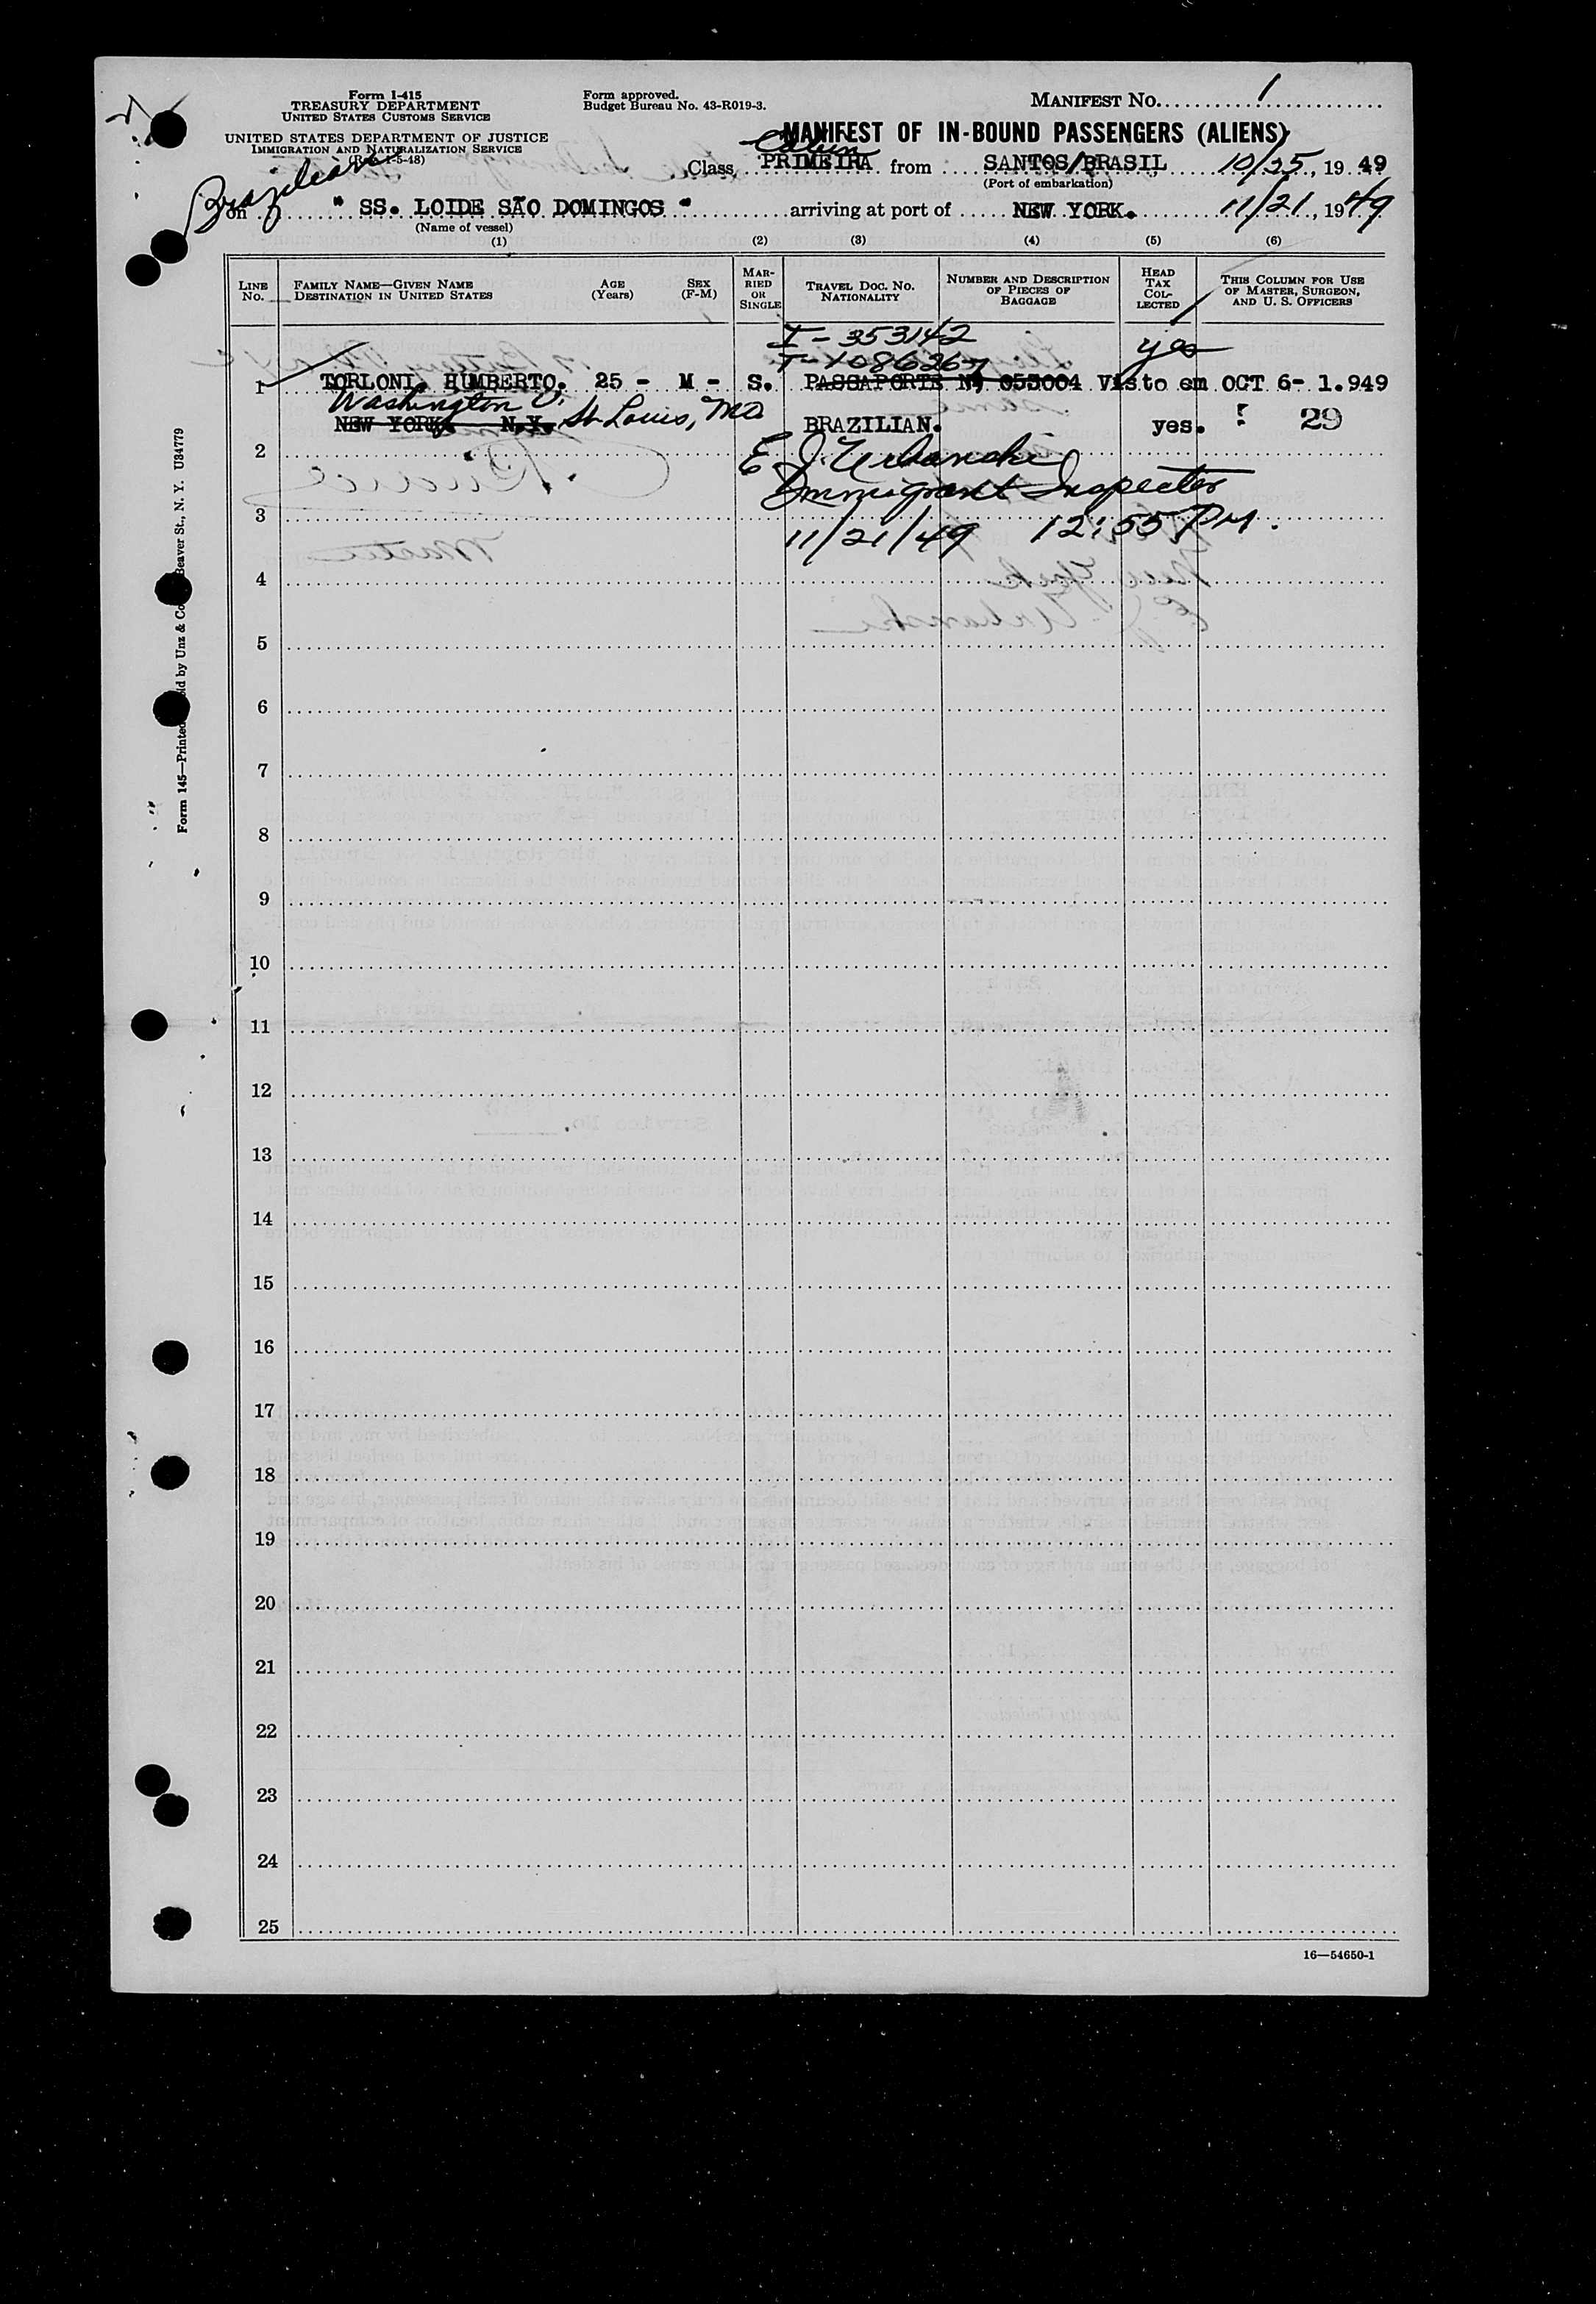 Form I-415
TREASURY DEPARTMENT
UNITED STATES CUSTOMS SERVICE
UNITED STATES DEPARTMENT OF JUSTICE
IMMIGRATION AND NATURALIZATION SERVICE
(Rev. 1-5-48)
Form approved.
Budget Bureau No. 43-R019-3.
MANIFEST NO. 1
MANIFEST OF IN-BOUND PASSENGERS (ALIENS)
Cabin
Class PRIMEIRA from SANTOS/BRASIL 10/25, 1949
(Port of embarkation)
Brazilian
on " SS. LOIDE SÃO DOMINGOS " arriving at port of NEW YORK. 11/21, 1949
(Name of vessel)
(1) (2) (3) (4) (5) (6)
LINE No.
FAMILY NAME—GIVEN NAME
DESTINATION IN UNITED STATES
AGE (Years)
SEX (F-M)
MARRIED OR SINGLE
TRAVEL DOC. NO.
NATIONALITY
NUMBER AND DESCRIPTION OF PIECES OF BAGGAGE
HEAD TAX COLLECTED
THIS COLUMN FOR USE OF MASTER, SURGEON, AND U. S. OFFICERS
I-353142 yes
T-1086267
1 TORLONI, HUMBERTO. 25 - M - S. PASSAPORTE Nº 053004 Visto em OCT 6- 1.949
Washington U.
NEW YORK. N.Y. St Louis, MO. BRAZILIAN. yes. 29
2 E J. Urbanski
Immigrant Inspector
3
11/21/49 12:55 PM.
4
5
6
7
8
9
10
11
12
13
14
15
16
17
18
19
20
21
22
23
24
25
16—54650-1
Form 145—Printed
ld by Unz & Co
Beaver St., N. Y. U34779